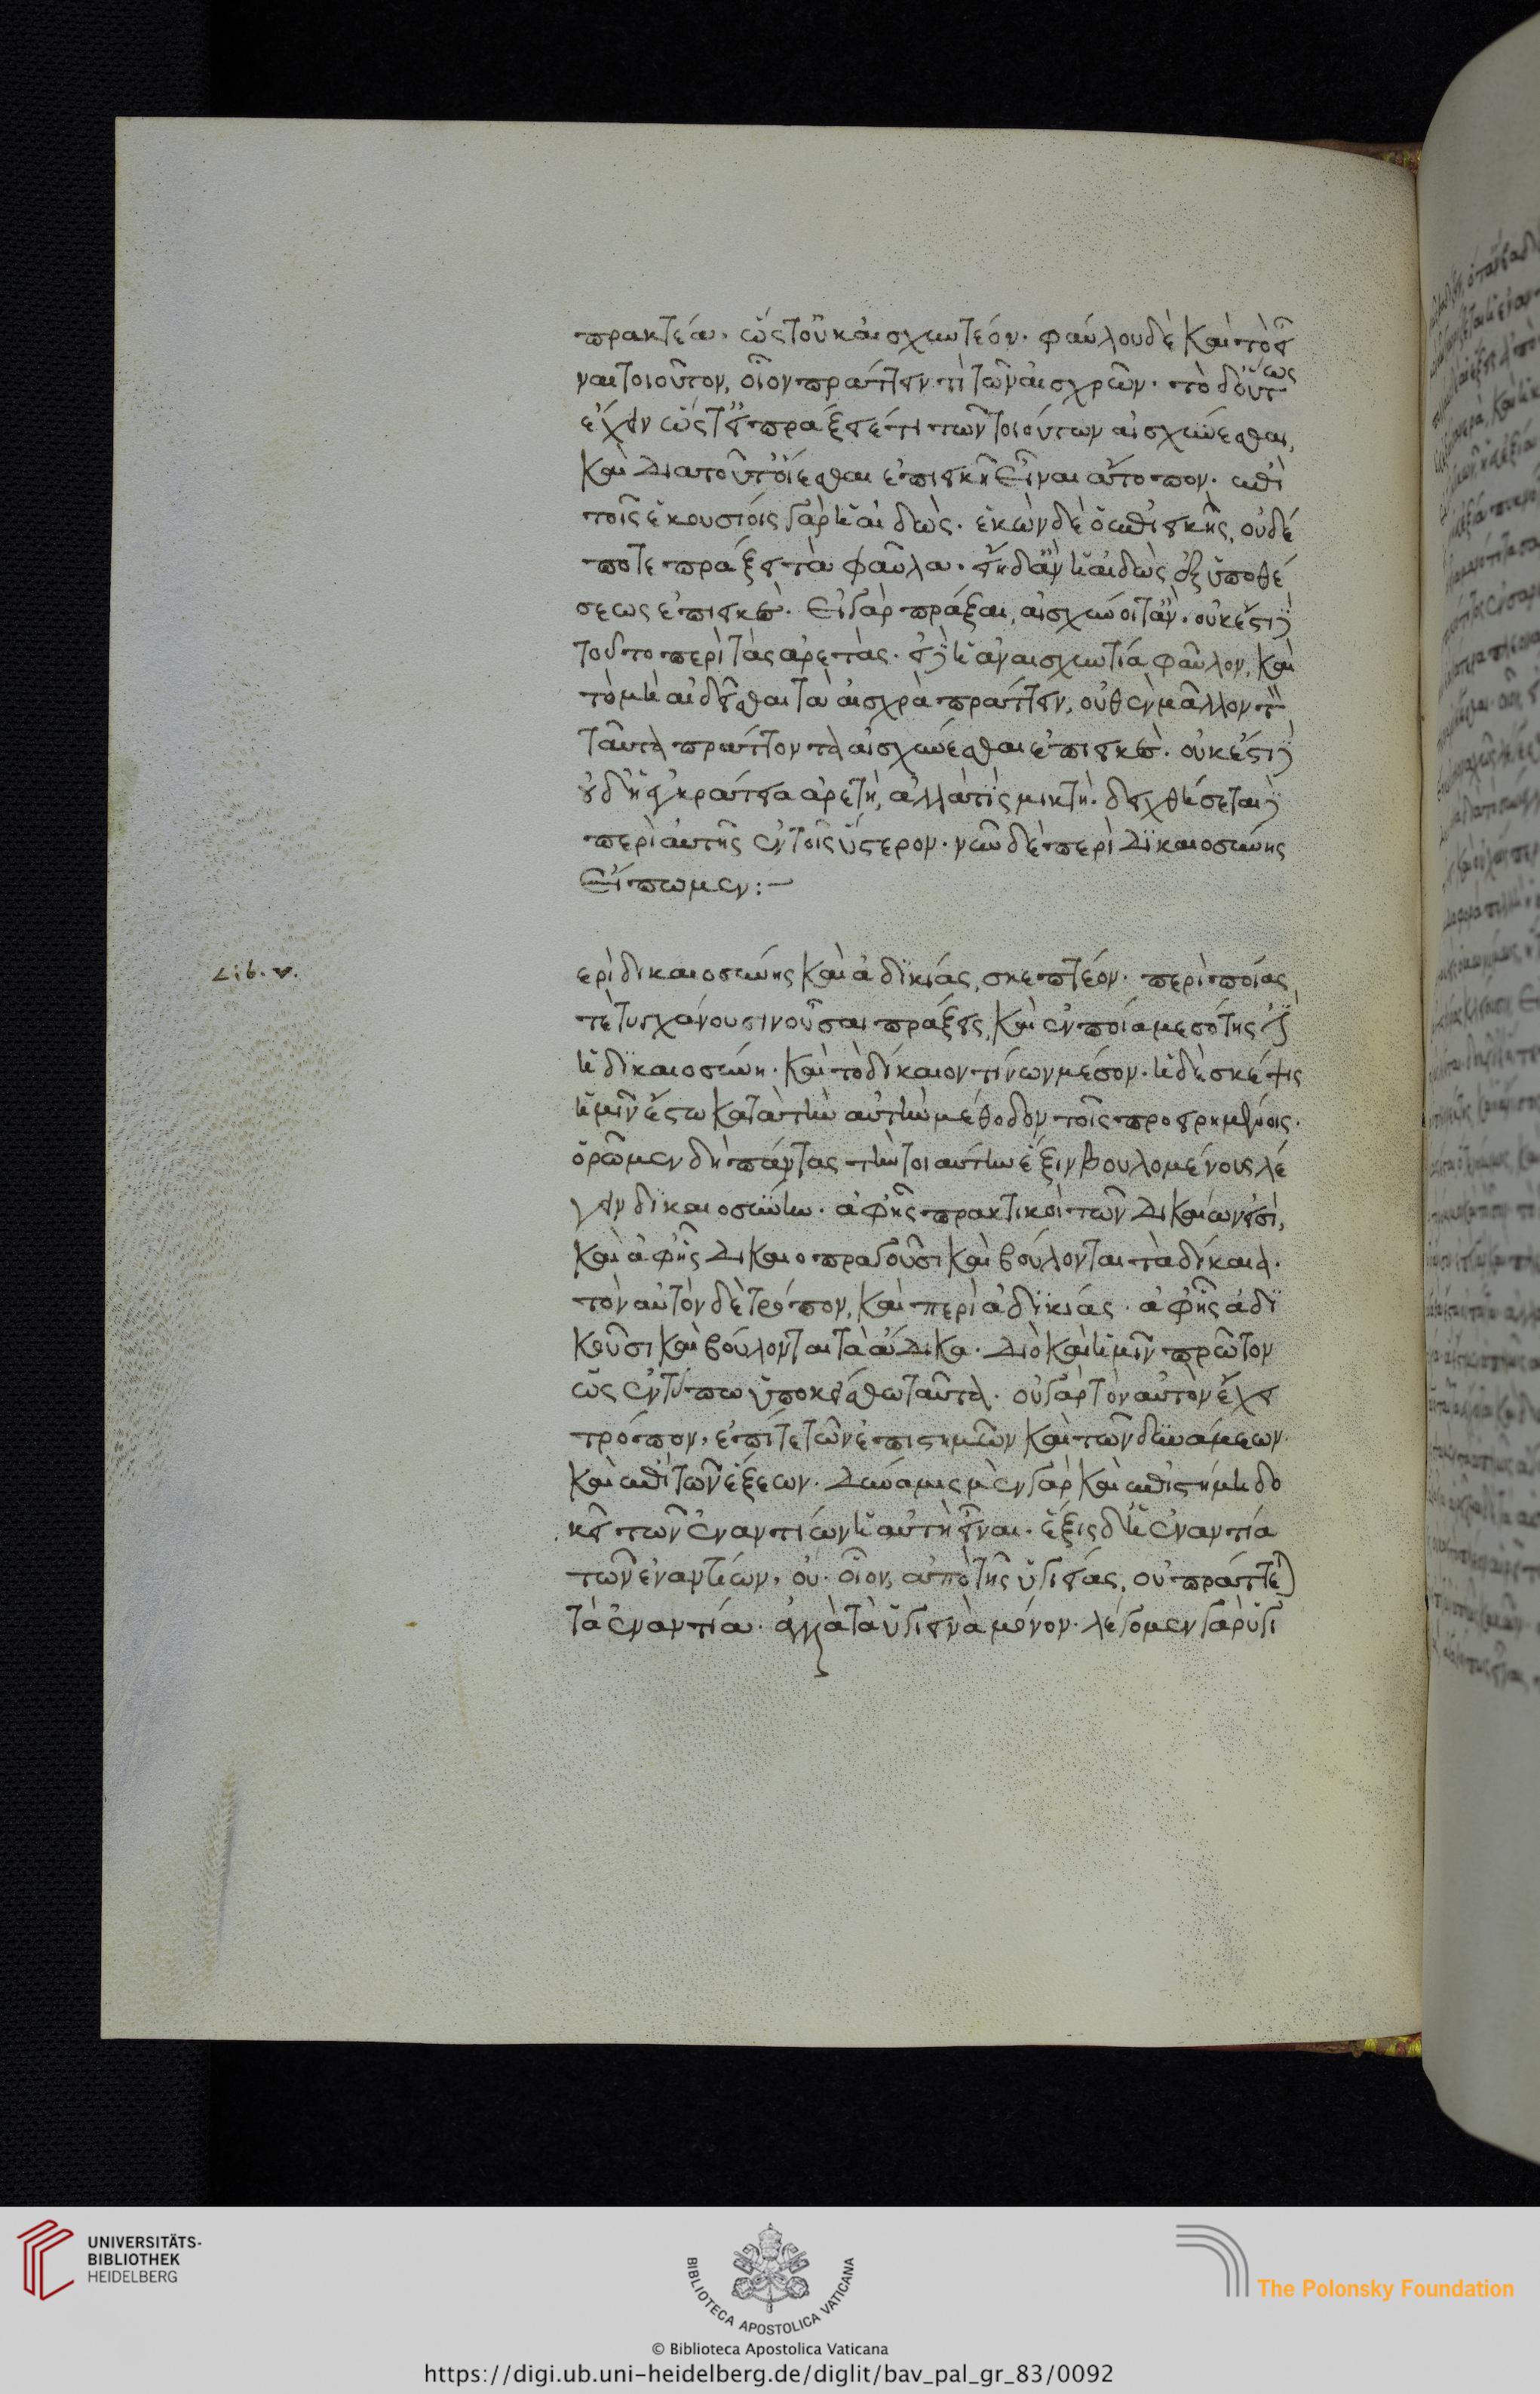 πρακτέα. ὥστ' οὐκ αἰσχυντέον. φαύλου δὲ καὶ τὸ εἶ
ναι τοιοῦτον, οἷον πράττειν τὶ τῶν αἰσχρῶν. τὸ δ' οὕτως
ἔχειν ὥστ' εἰ πράξειέ τι τῶν τοιούτων αἰσχύνεσθαι,
καὶ διὰ τοῦτ' οἴεσθαι ἐπιεικῆ εἶναι ἄτοπον. ἐπὶ
τοῖς ἑκουσίοις γὰρ ἡ αἰδώς. ἑκὼν δὲ ὁ ἐπιεικὴς, οὐδέ
ποτε πράξει τὰ φαῦλα. εἴη δ' ἂν ἡ αἰδὼς ἐξ ὑποθέ
σεως ἐπιεικές. εἰ γὰρ πράξαι, αἰσχύνοιτ' ἄν. οὐκ ἔστι δὲ
τοῦτο περὶ τὰς ἀρετάς. εἰ δ' ἡ ἀναισχυντία φαῦλον, καὶ
τὸ μὴ αἰδεῖσθαι τὰ αἰσχρὰ πράττειν, οὐθὲν μᾶλλον τὸν
ταῦτα πράττοντα αἰσχύνεσθαι ἐπιεικές. οὐκ ἔστι δὲ
οὐδ' ἡ ἐγκράτεια ἀρετή, ἀλλά τις μικτή. δειχθήσεται δὲ
περὶ αὐτῆς ἐν τοῖς ὕστερον. νῦν δὲ περὶ δικαιοσύνης
εἴπωμεν:—
Lib. v.
ερὶ δικαιοσύνης καὶ ἀδικίας, σκεπτέον. περὶ ποίας
τὲ τυγχάνουσιν οὖσαι πράξεις, καὶ ἐν ποία μεσότης ἐστὶν
ἡ δικαιοσύνη. καὶ τὸ δίκαιον τίνων μέσον. ἡ δὲ σκέψις
ἡμῖν ἔστω κατὰ τὴν αὐτὴν μέθοδον τοῖς προειρημένοις.
ὁρῶμεν δὴ πάντας τὴν τοιαύτην ἕξιν βουλομένους λέ
γειν δικαιοσύνην. ἀφ' ἧς πρακτικοὶ τῶν δικαίων εἰσὶ,
καὶ ἀφ' ἧς δικαιοπραγοῦσι καὶ βούλονται τὰ δίκαια.
τὸν αὐτὸν δὲ τρόπον, καὶ περὶ ἀδικίας. ἀφ' ἧς ἀδι
κοῦσι καὶ βούλονται τὰ ἄδικα. διὸ καὶ ἡμῖν πρῶτον
ὡς ἐν τύπω ὑποκείσθω ταῦτα. οὐ γὰρ τὸν αὐτὸν ἔχει
τρόπον, ἐπί τε τῶν ἐπιστημῶν καὶ τῶν δυνάμεων
καὶ ἐπὶ τῶν ἕξεων. δύναμις μὲν γὰρ καὶ ἐπιστήμη δο
κεῖ τῶν ἐναντίων ἡ αὐτὴ εἶναι. ἕξις δ' ἡ ἐναντία
τῶν ἐναντίων, οὔ. οἷον, ἀπὸ τῆς ὑγιείας, οὐ πράττεται
τὰ ἐναντία. ἀλλὰ τὰ ὑγιεινὰ μόνον. λέγομεν γὰρ ὑγι
UNIVERSITÄTS-
BIBLIOTHEK
HEIDELBERG
BIBLIOTECA APOSTOLICA VATICANA
The Polonsky Foundation
© Biblioteca Apostolica Vaticana
https://digi.ub.uni-heidelberg.de/diglit/bav_pal_gr_83/0092